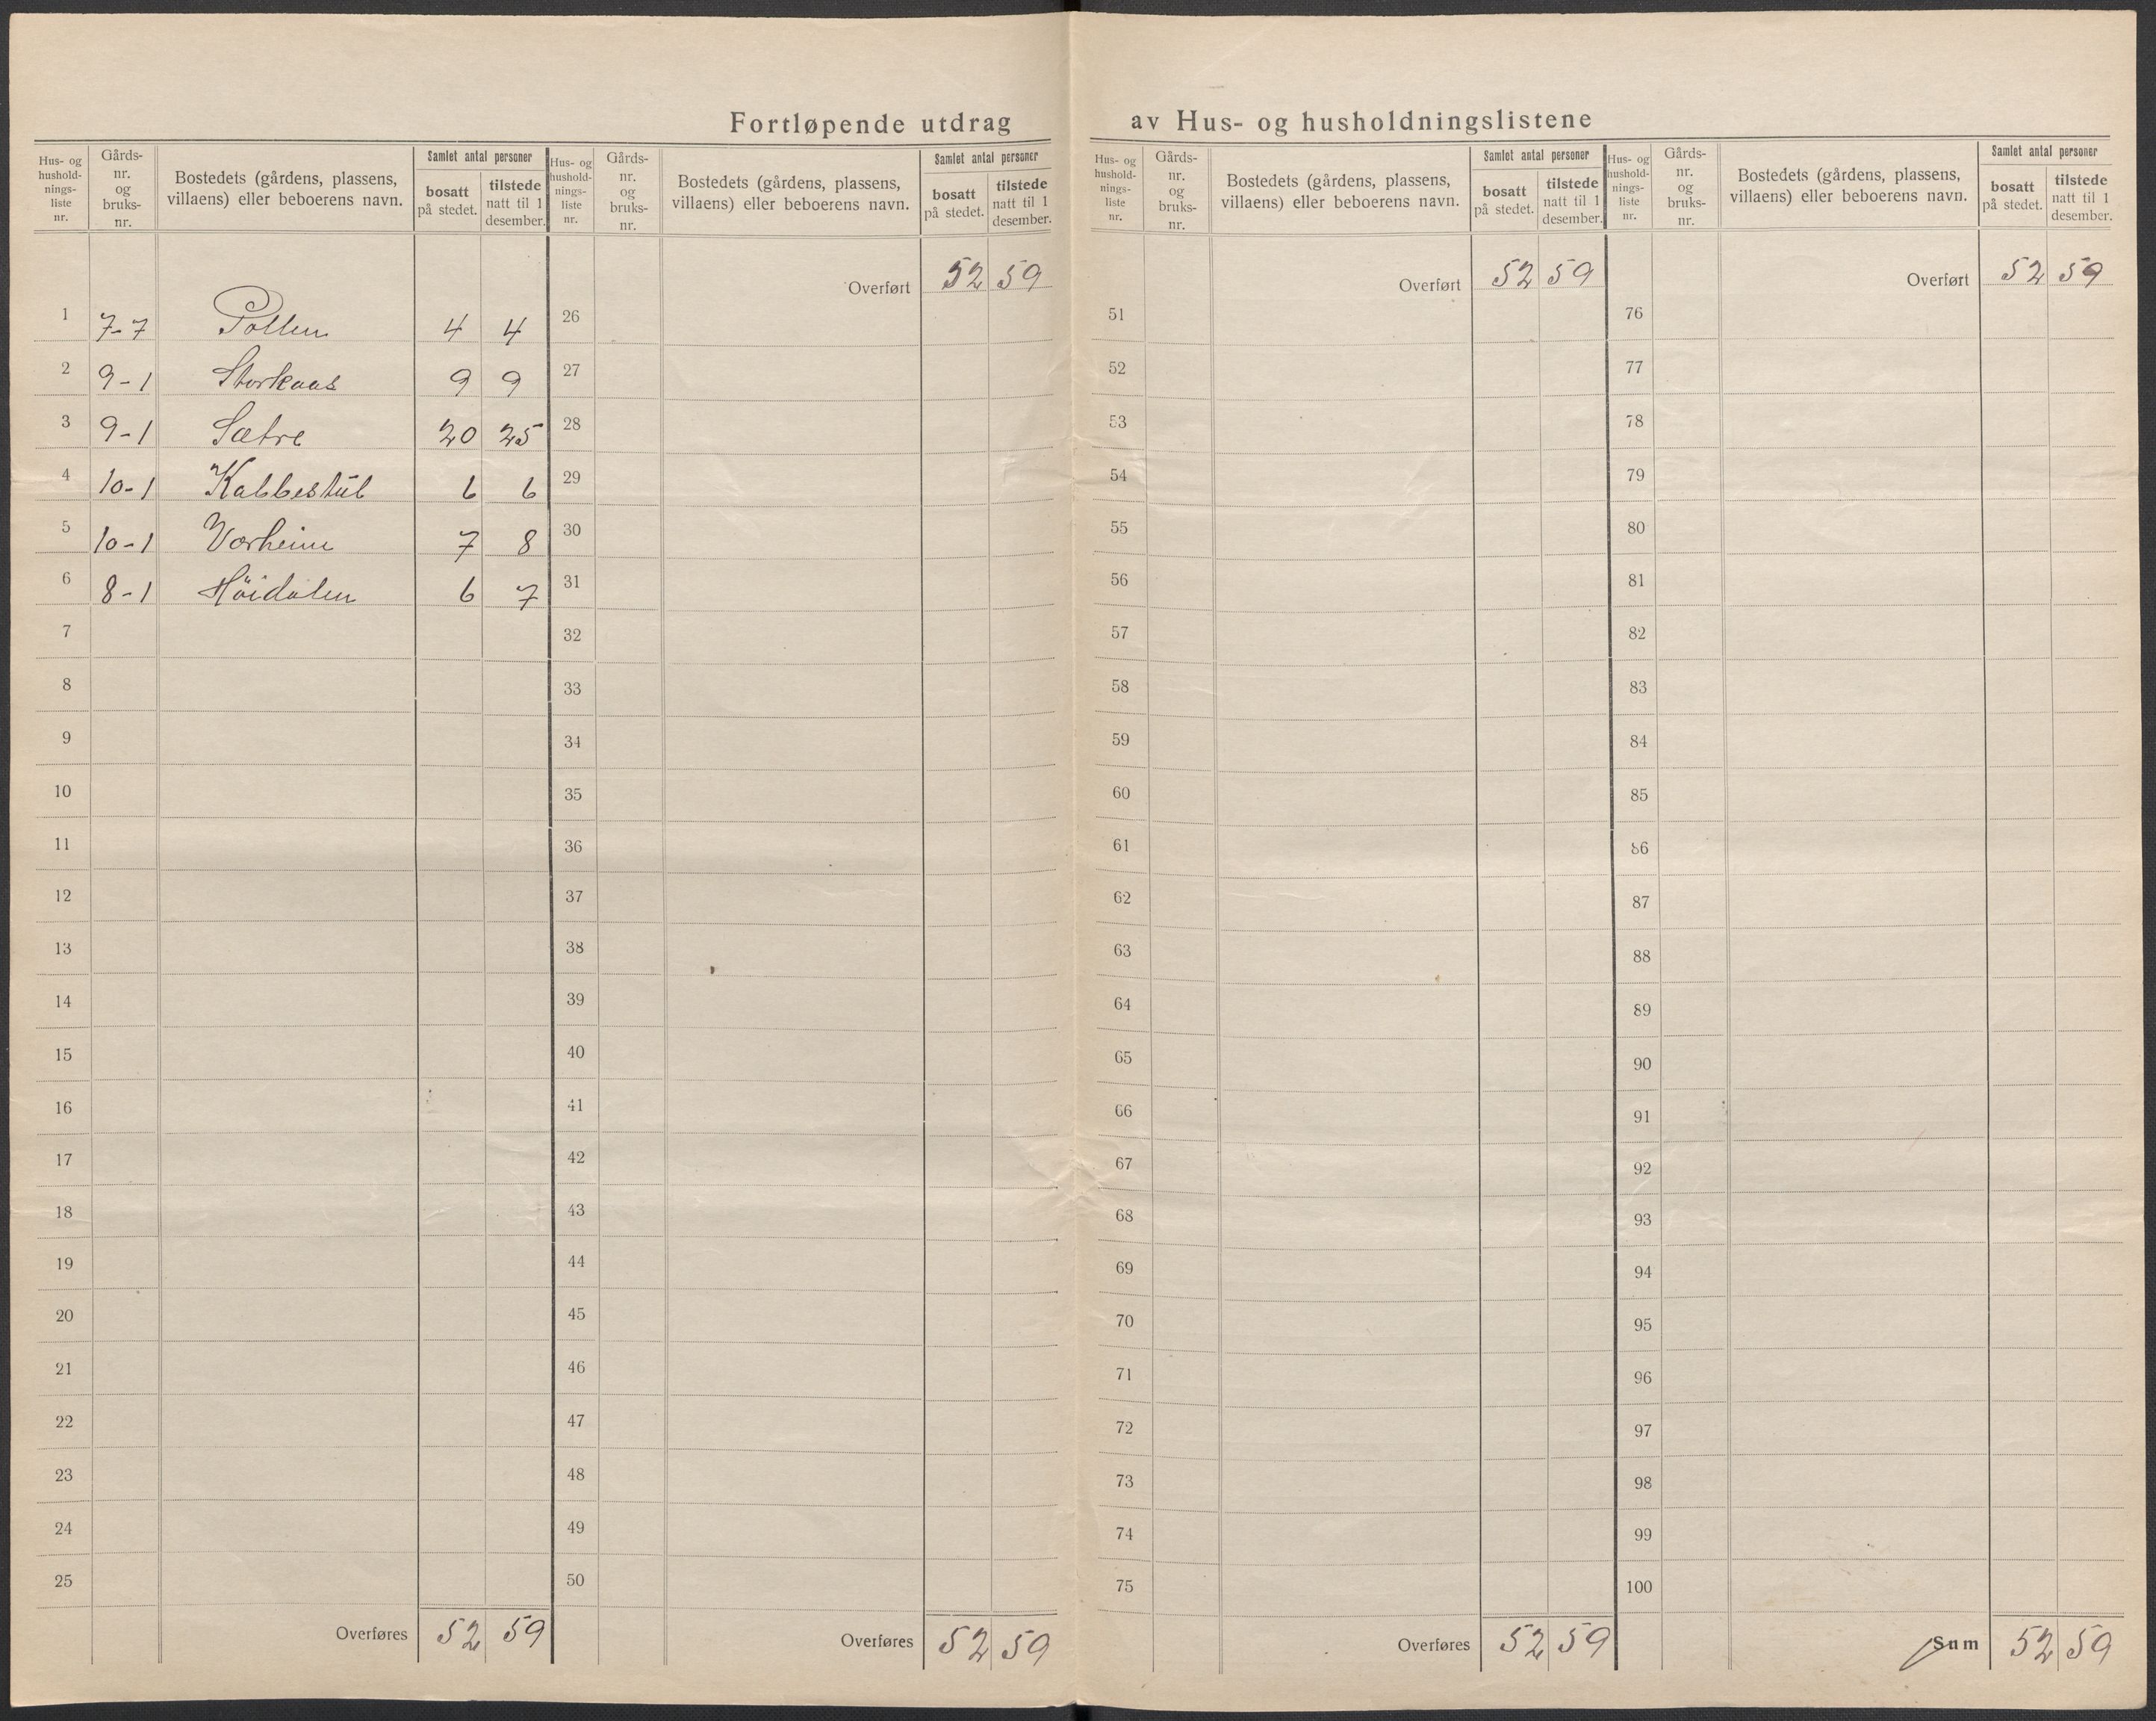 Fortløpende utdrag av Hus- og husholdningslistene
Hus- og hushold-nings-liste nr. Gårds-nr. og bruks-nr. Bostedets (gårdens, plassens, villaens) eller beboerens navn. Samlet antal personer bosatt på stedet. tilstede natt til 1 desember.
1 7-7 Pollen 4 4
2 9-1 Storkaas 9 9
3 9-1 Sætre 20 25
4 10-1 Kabbestül 6 6
5 10-1 Vorheim 7 8
6 8-1 Höidalen 6 7
7
8
9
10
11
12
13
14
15
16
17
18
19
20
21
22
23
24
25
Overføres 52 59
Hus- og hushold-nings-liste nr. Gårds-nr. og bruks-nr. Bostedets (gårdens, plassens, villaens) eller beboerens navn. Samlet antal personer bosatt på stedet. tilstede natt til 1 desember.
Overført 52 59
26
27
28
29
30
31
32
33
34
35
36
37
38
39
40
41
42
43
44
45
46
47
48
49
50
Overføres 52 59
Hus- og hushold-nings-liste nr. Gårds-nr. og bruks-nr. Bostedets (gårdens, plassens, villaens) eller beboerens navn. Samlet antal personer bosatt på stedet. tilstede natt til 1 desember.
Overført 52 59
51
52
53
54
55
56
57
58
59
60
61
62
63
64
65
66
67
68
69
70
71
72
73
74
75
Overføres 52 59
Hus- og hushold-nings-liste nr. Gårds-nr. og bruks-nr. Bostedets (gårdens, plassens, villaens) eller beboerens navn. Samlet antal personer bosatt på stedet. tilstede natt til 1 desember.
Overført 52 59
76
77
78
79
80
81
82
83
84
85
86
87
88
89
90
91
92
93
94
95
96
97
98
99
100
Sum 52 59